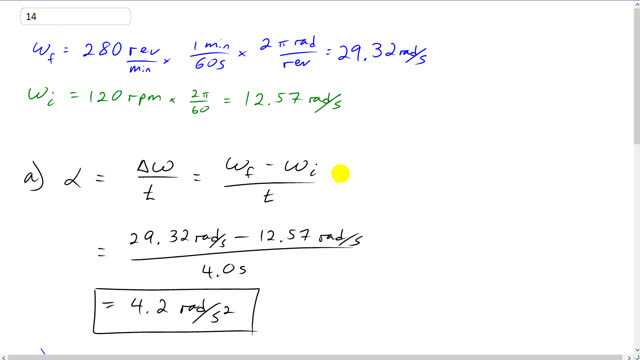 14
ω_f = 280 rev/min × 1 min/60s × 2π rad/rev = 29.32 rad/s
ω_i = 120 rpm × 2π/60 = 12.57 rad/s
a) α = Δω/t = (ω_f − ω_i)/t
= (29.32 rad/s − 12.57 rad/s)/4.0s
= 4.2 rad/s²